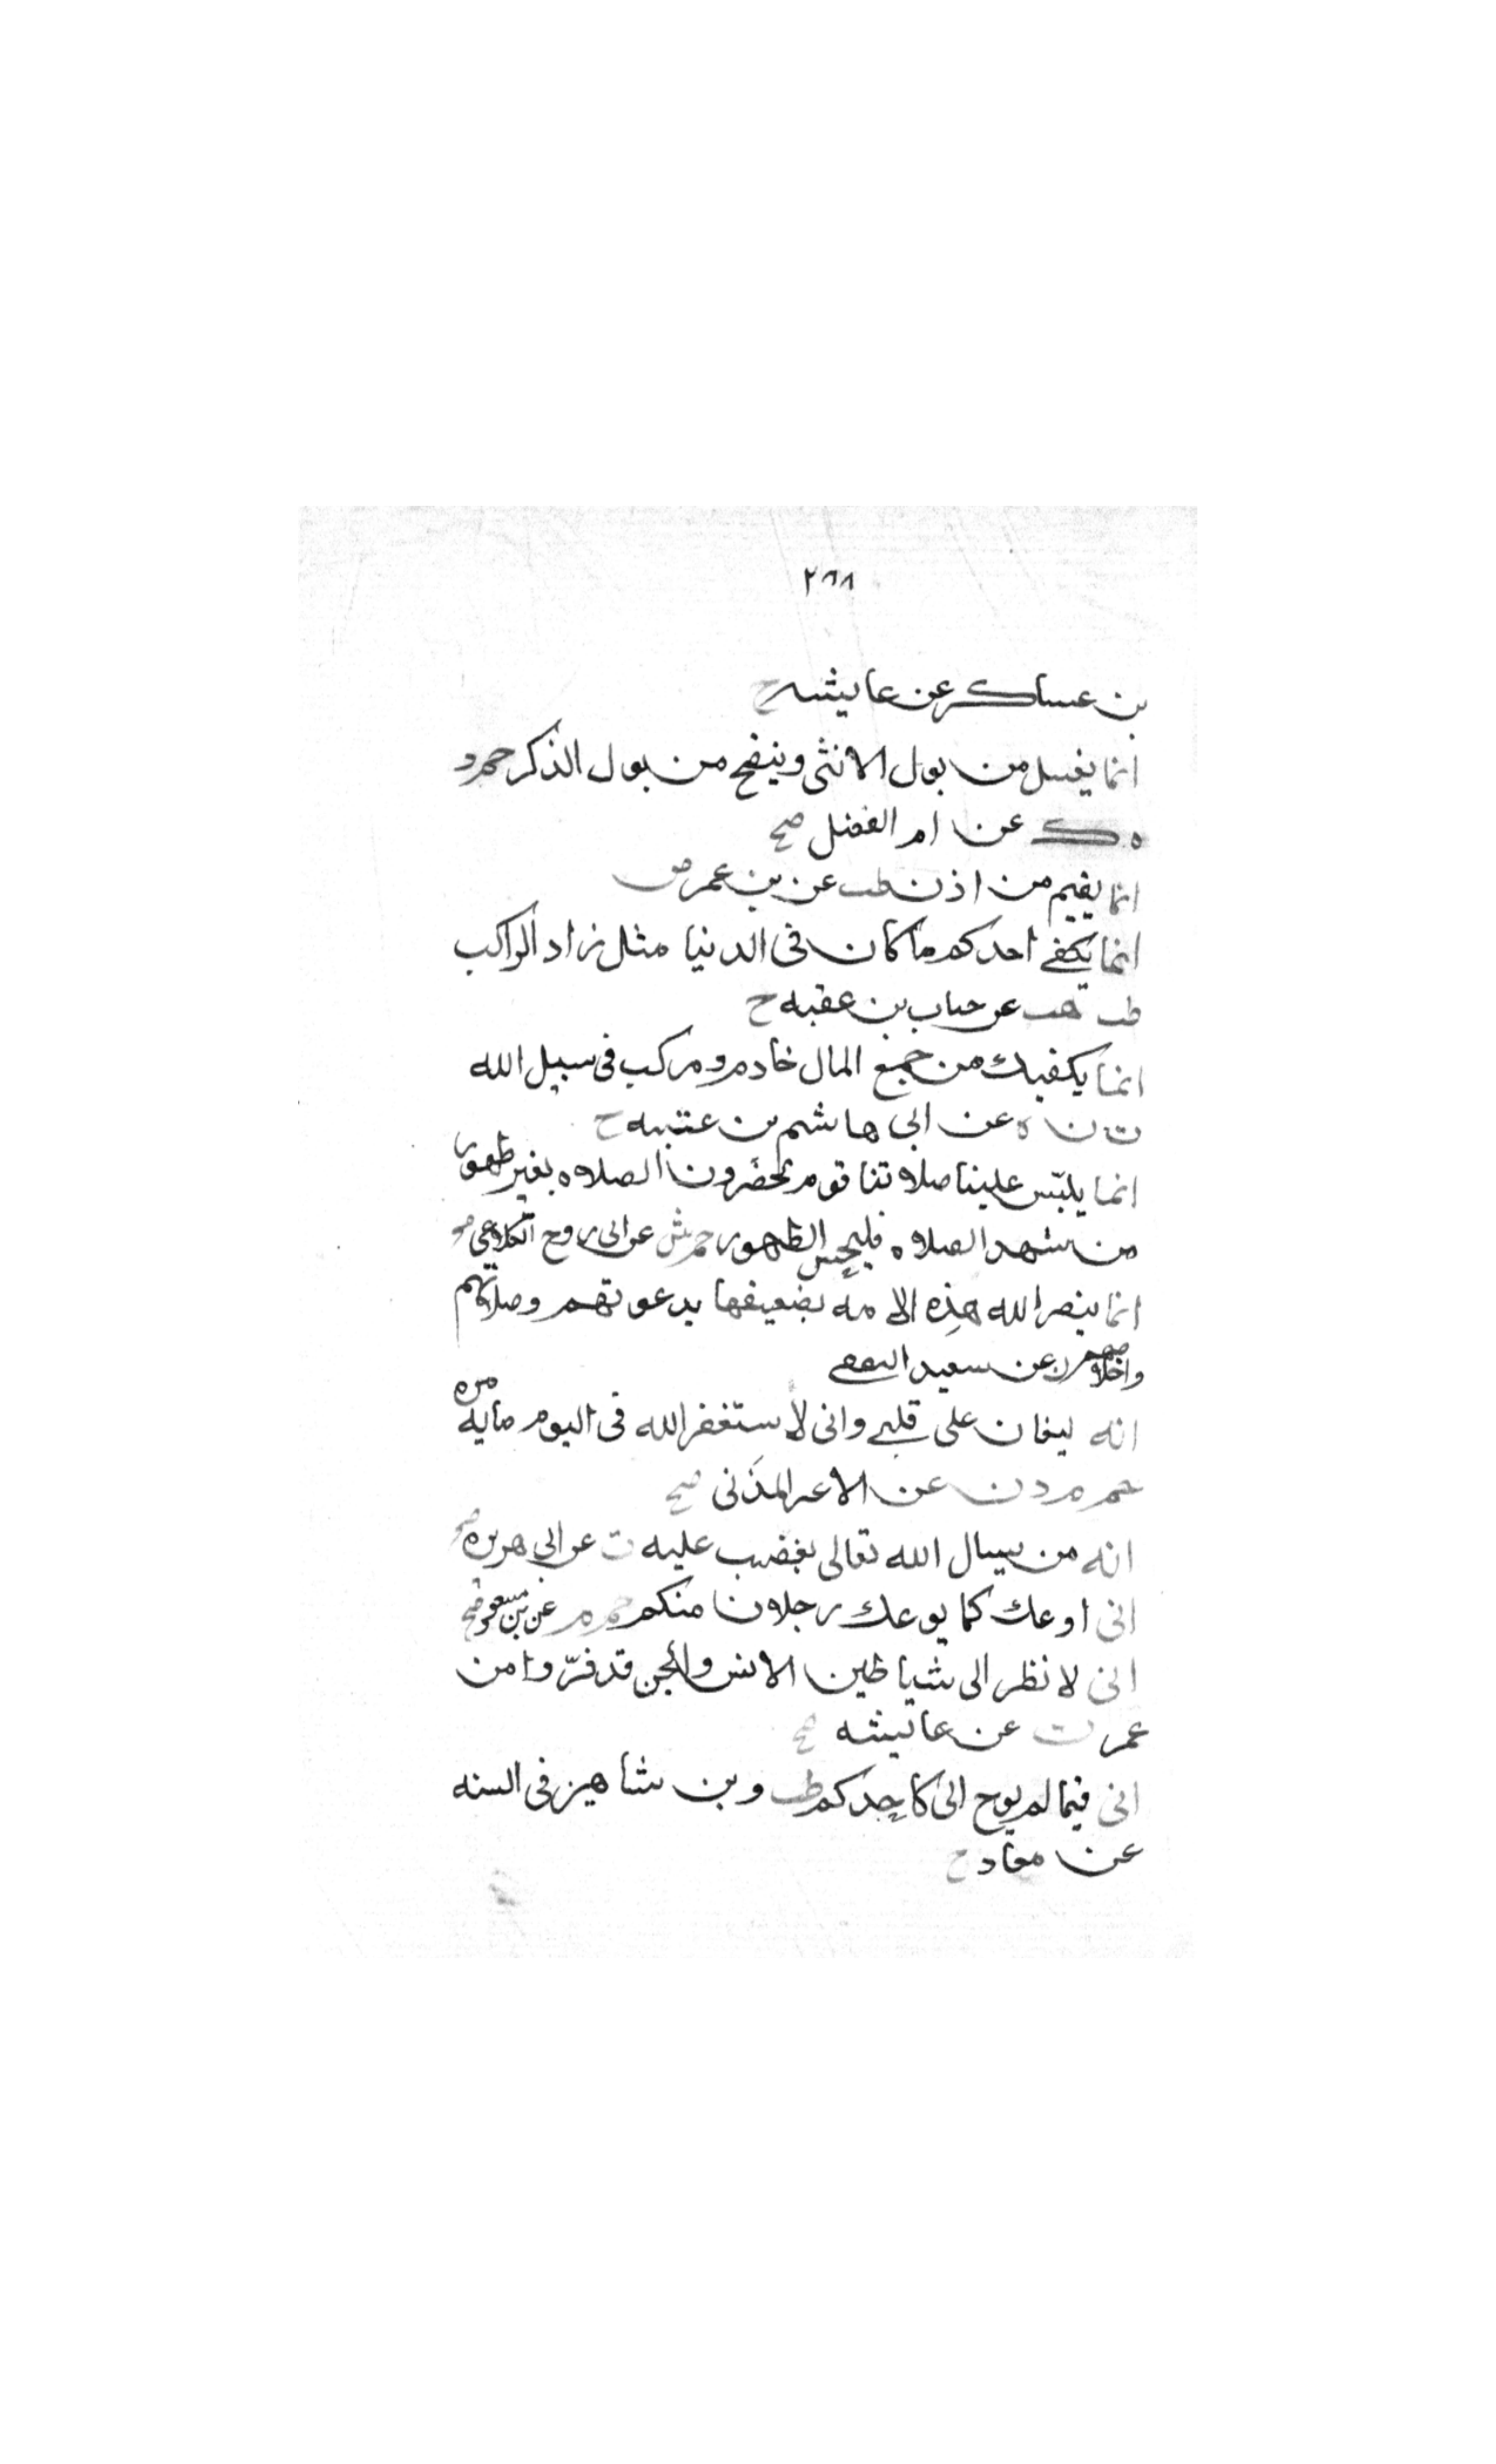 ٢٦٨
بن عساكر عن عايشه ح
انما يغسل من بول الانثى وينضح من بول الذكر حم د
ه ك عن ام الفضل صح
انما يقيم من اذن طب عن بن عمر ض
انما يكفي احدكم ما كان فى الدنيا مثل زاد الراكب
طب هب عن خباب بن عقبه ح
انما يكفيك من جمع المال خادم ومركب فى سبيل الله
ت ن ه عن ابى هاشم بن عتبه ح
انما يلبّس علينا صلاتنا قوم يحضرون الصلاه بغير طهور
من شهد الصلاه فليحسن الطهور حم ش عن ابى روح الكلاعى
انما ينصر الله هذه الامه بضعيفها بدعوتهم وصلاتهم
واخلاصهم ن عن سعيد
انه ليغان على قلبي وانى لأستغفر الله فى اليوم مايه مره
حم م د ن عن الاغر المزنى صح
انه من يسال الله تعالى يغضب عليه ت عن ابى هريره
انى اوعك كما يوعك رجلان منكم حم م عن بن مسعود صح
انى لانظر الى شياطين الانس والجن قد فرّوا من
عمر ت عن عايشه صح
انى فيما لم يوح الى كاحدكم طب وبن شاهين فى السنه
عن معاذ ح